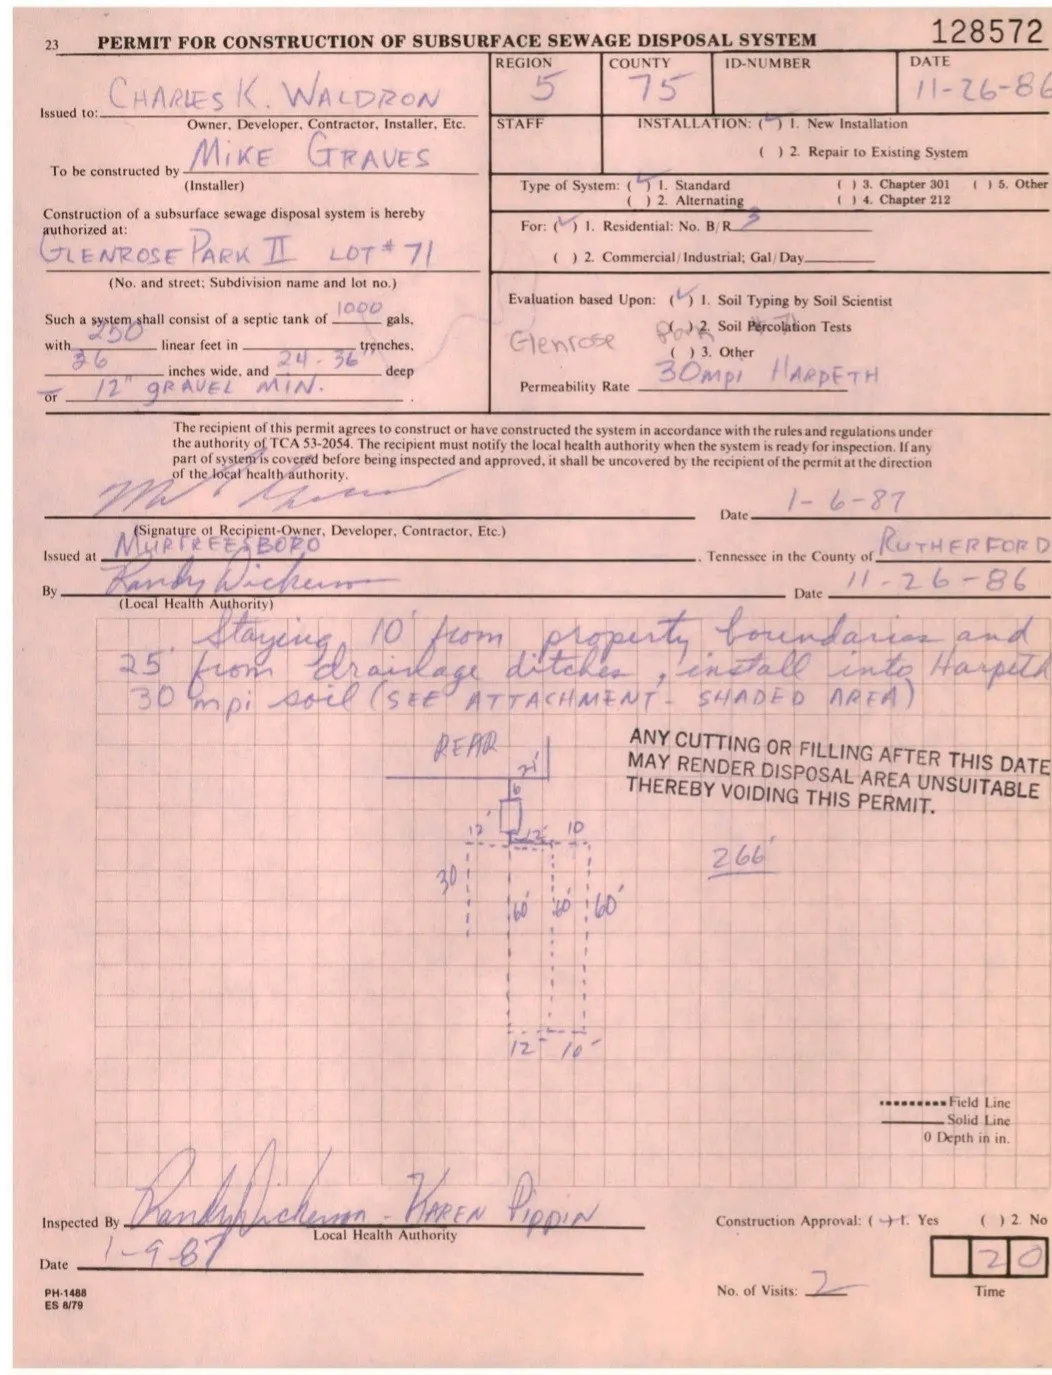 23 PERMIT FOR CONSTRUCTION OF SUBSURFACE SEWAGE DISPOSAL SYSTEM 128572
Issued to: CHARLES K. WALDRON
Owner, Developer, Contractor, Installer, Etc.
To be constructed by MIKE GRAVES
(Installer)
Construction of a subsurface sewage disposal system is hereby
authorized at:
GLENROSE PARK II LOT # 71
(No. and street; Subdivision name and lot no.)
Such a system shall consist of a septic tank of 1000 gals.
with 250 linear feet in trenches,
36 inches wide, and 24-36" deep
or 12" GRAVEL MIN.
REGION 5
COUNTY 75
ID-NUMBER
DATE 11-26-86
STAFF
INSTALLATION: (✓) 1. New Installation
( ) 2. Repair to Existing System
Type of System: (✓) 1. Standard ( ) 3. Chapter 301 ( ) 5. Other
( ) 2. Alternating ( ) 4. Chapter 212
For: (✓) 1. Residential: No. B/R 3
( ) 2. Commercial/Industrial; Gal/Day
Evaluation based Upon: (✓) 1. Soil Typing by Soil Scientist
( ) 2. Soil Percolation Tests
Glenrose Park # 71
( ) 3. Other
Permeability Rate 30mpi HARPETH
The recipient of this permit agrees to construct or have constructed the system in accordance with the rules and regulations under
the authority of TCA 53-2054. The recipient must notify the local health authority when the system is ready for inspection. If any
part of system is covered before being inspected and approved, it shall be uncovered by the recipient of the permit at the direction
of the local health authority.
Date 1-6-87
(Signature of Recipient-Owner, Developer, Contractor, Etc.)
Issued at MURFREESBORO, Tennessee in the County of RUTHERFORD
By Randy Dickerson Date 11-26-86
(Local Health Authority)
Staying 10' from property boundaries and
25' from drainage ditches, install into Harpeth
30 mpi soil (SEE ATTACHMENT - SHADED AREA)
REAR
ANY CUTTING OR FILLING AFTER THIS DATE
MAY RENDER DISPOSAL AREA UNSUITABLE
THEREBY VOIDING THIS PERMIT.
21'
6
12' 12' 10
266'
30
60' 60' 60'
12' 10'
Field Line
Solid Line
0 Depth in in.
Inspected By Randy Dickerson - KAREN PIPPIN
Local Health Authority
Construction Approval: (+) 1. Yes ( ) 2. No
Date 1-9-87
20
No. of Visits: 2 Time
PH-1488
ES 8/79